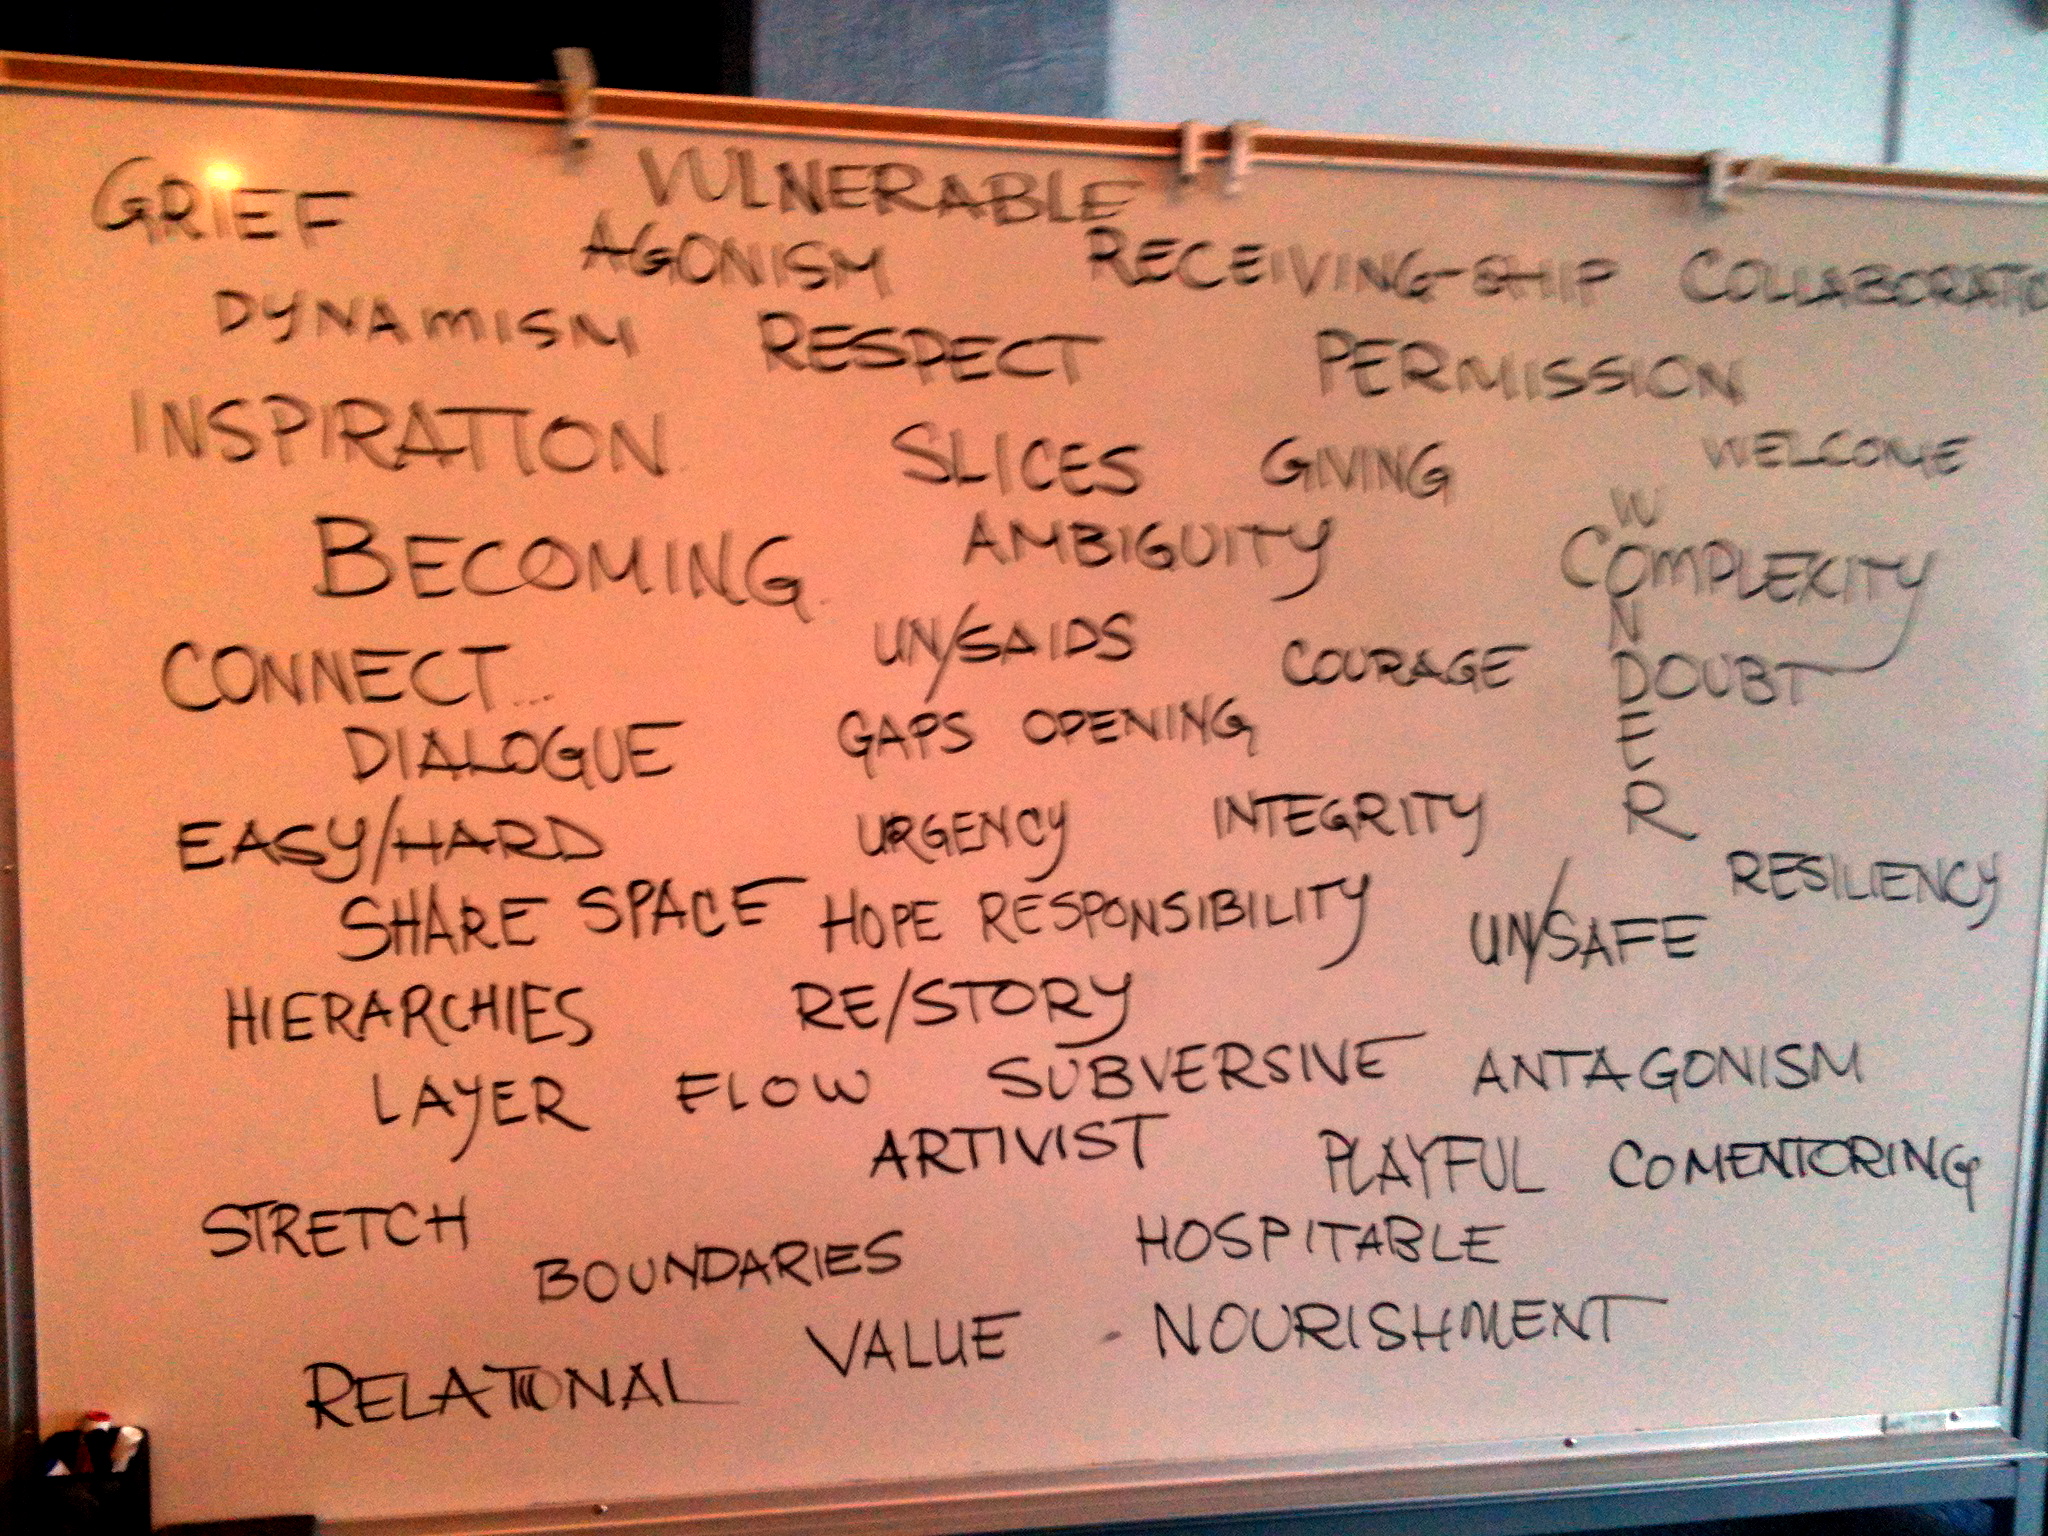 GRIEF VULNERABLE
AGONISM RECEIVING-SHIP COLLABORATIO
DYNAMISM RESPECT PERMISSION
INSPIRATION SLICES GIVING WELCOME
BECOMING. AMBIGUITY COMPLEXITY
WONDER
CONNECT... UN/SAIDS COURAGE DOUBT
DIALOGUE GAPS OPENING
EASY/HARD URGENCY INTEGRITY
SHARE SPACE HOPE RESPONSIBILITY UN/SAFE RESILIENCY
HIERARCHIES RE/STORY
LAYER FLOW SUBVERSIVE ANTAGONISM
ARTIVIST PLAYFUL COMENTORING
STRETCH BOUNDARIES HOSPITABLE
RELATIONAL VALUE - NOURISHMENT